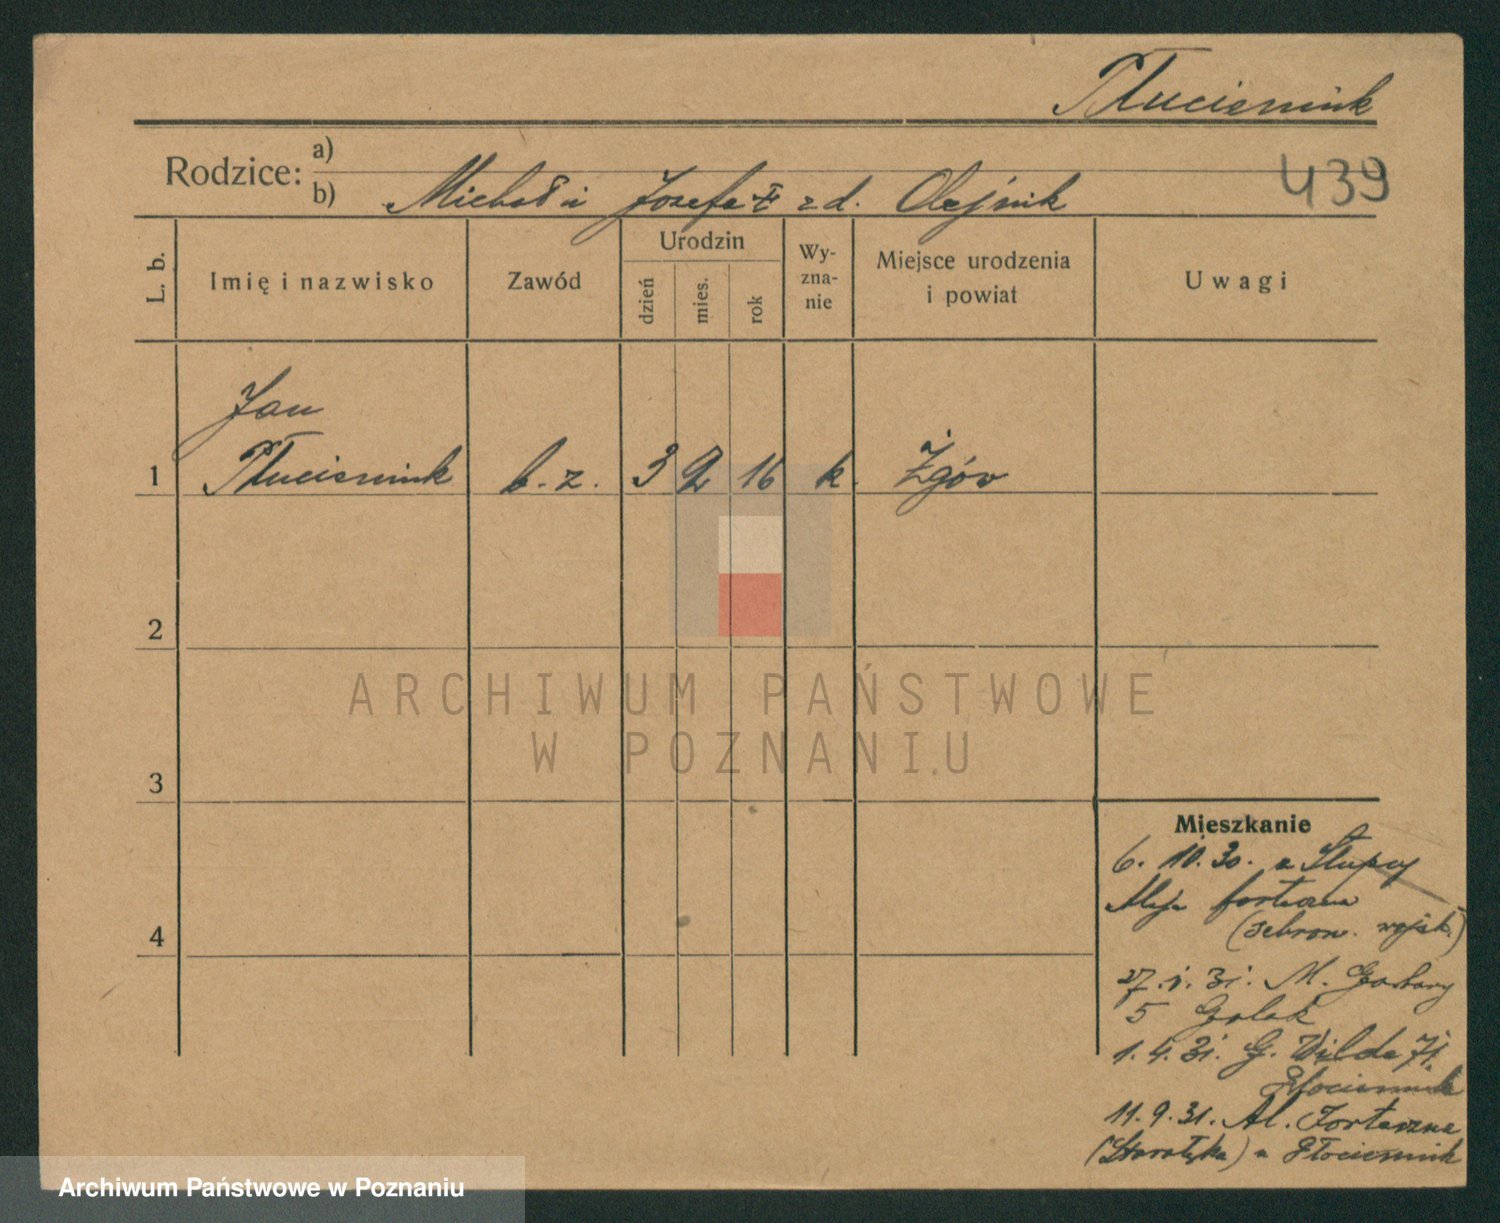 Płuciennik
Rodzice:
a)
b) Michał i Józefa zd. Olejnik
439
L. b.
Imię i nazwisko
Zawód
Urodzin
dzień
mies.
rok
Wy-
zna-
nie
Miejsce urodzenia
i powiat
Uwagi
Jan
1 Płuciennik b. z. 3 2 16 k. Żgów
2
3
4
Mieszkanie
6. 10. 30. z Słupcy
Aleja forteczna
(schron. wojsk.)
27. 1. 31. M. Garbary
5 Golak
1. 4. 31. G. Wilda 71.
Płociennik
11. 9. 31. Al. Forteczna
(Starołęka) u Płociennik
ARCHIWUM PAŃSTWOWE
W POZNANIU
Archiwum Państwowe w Poznaniu